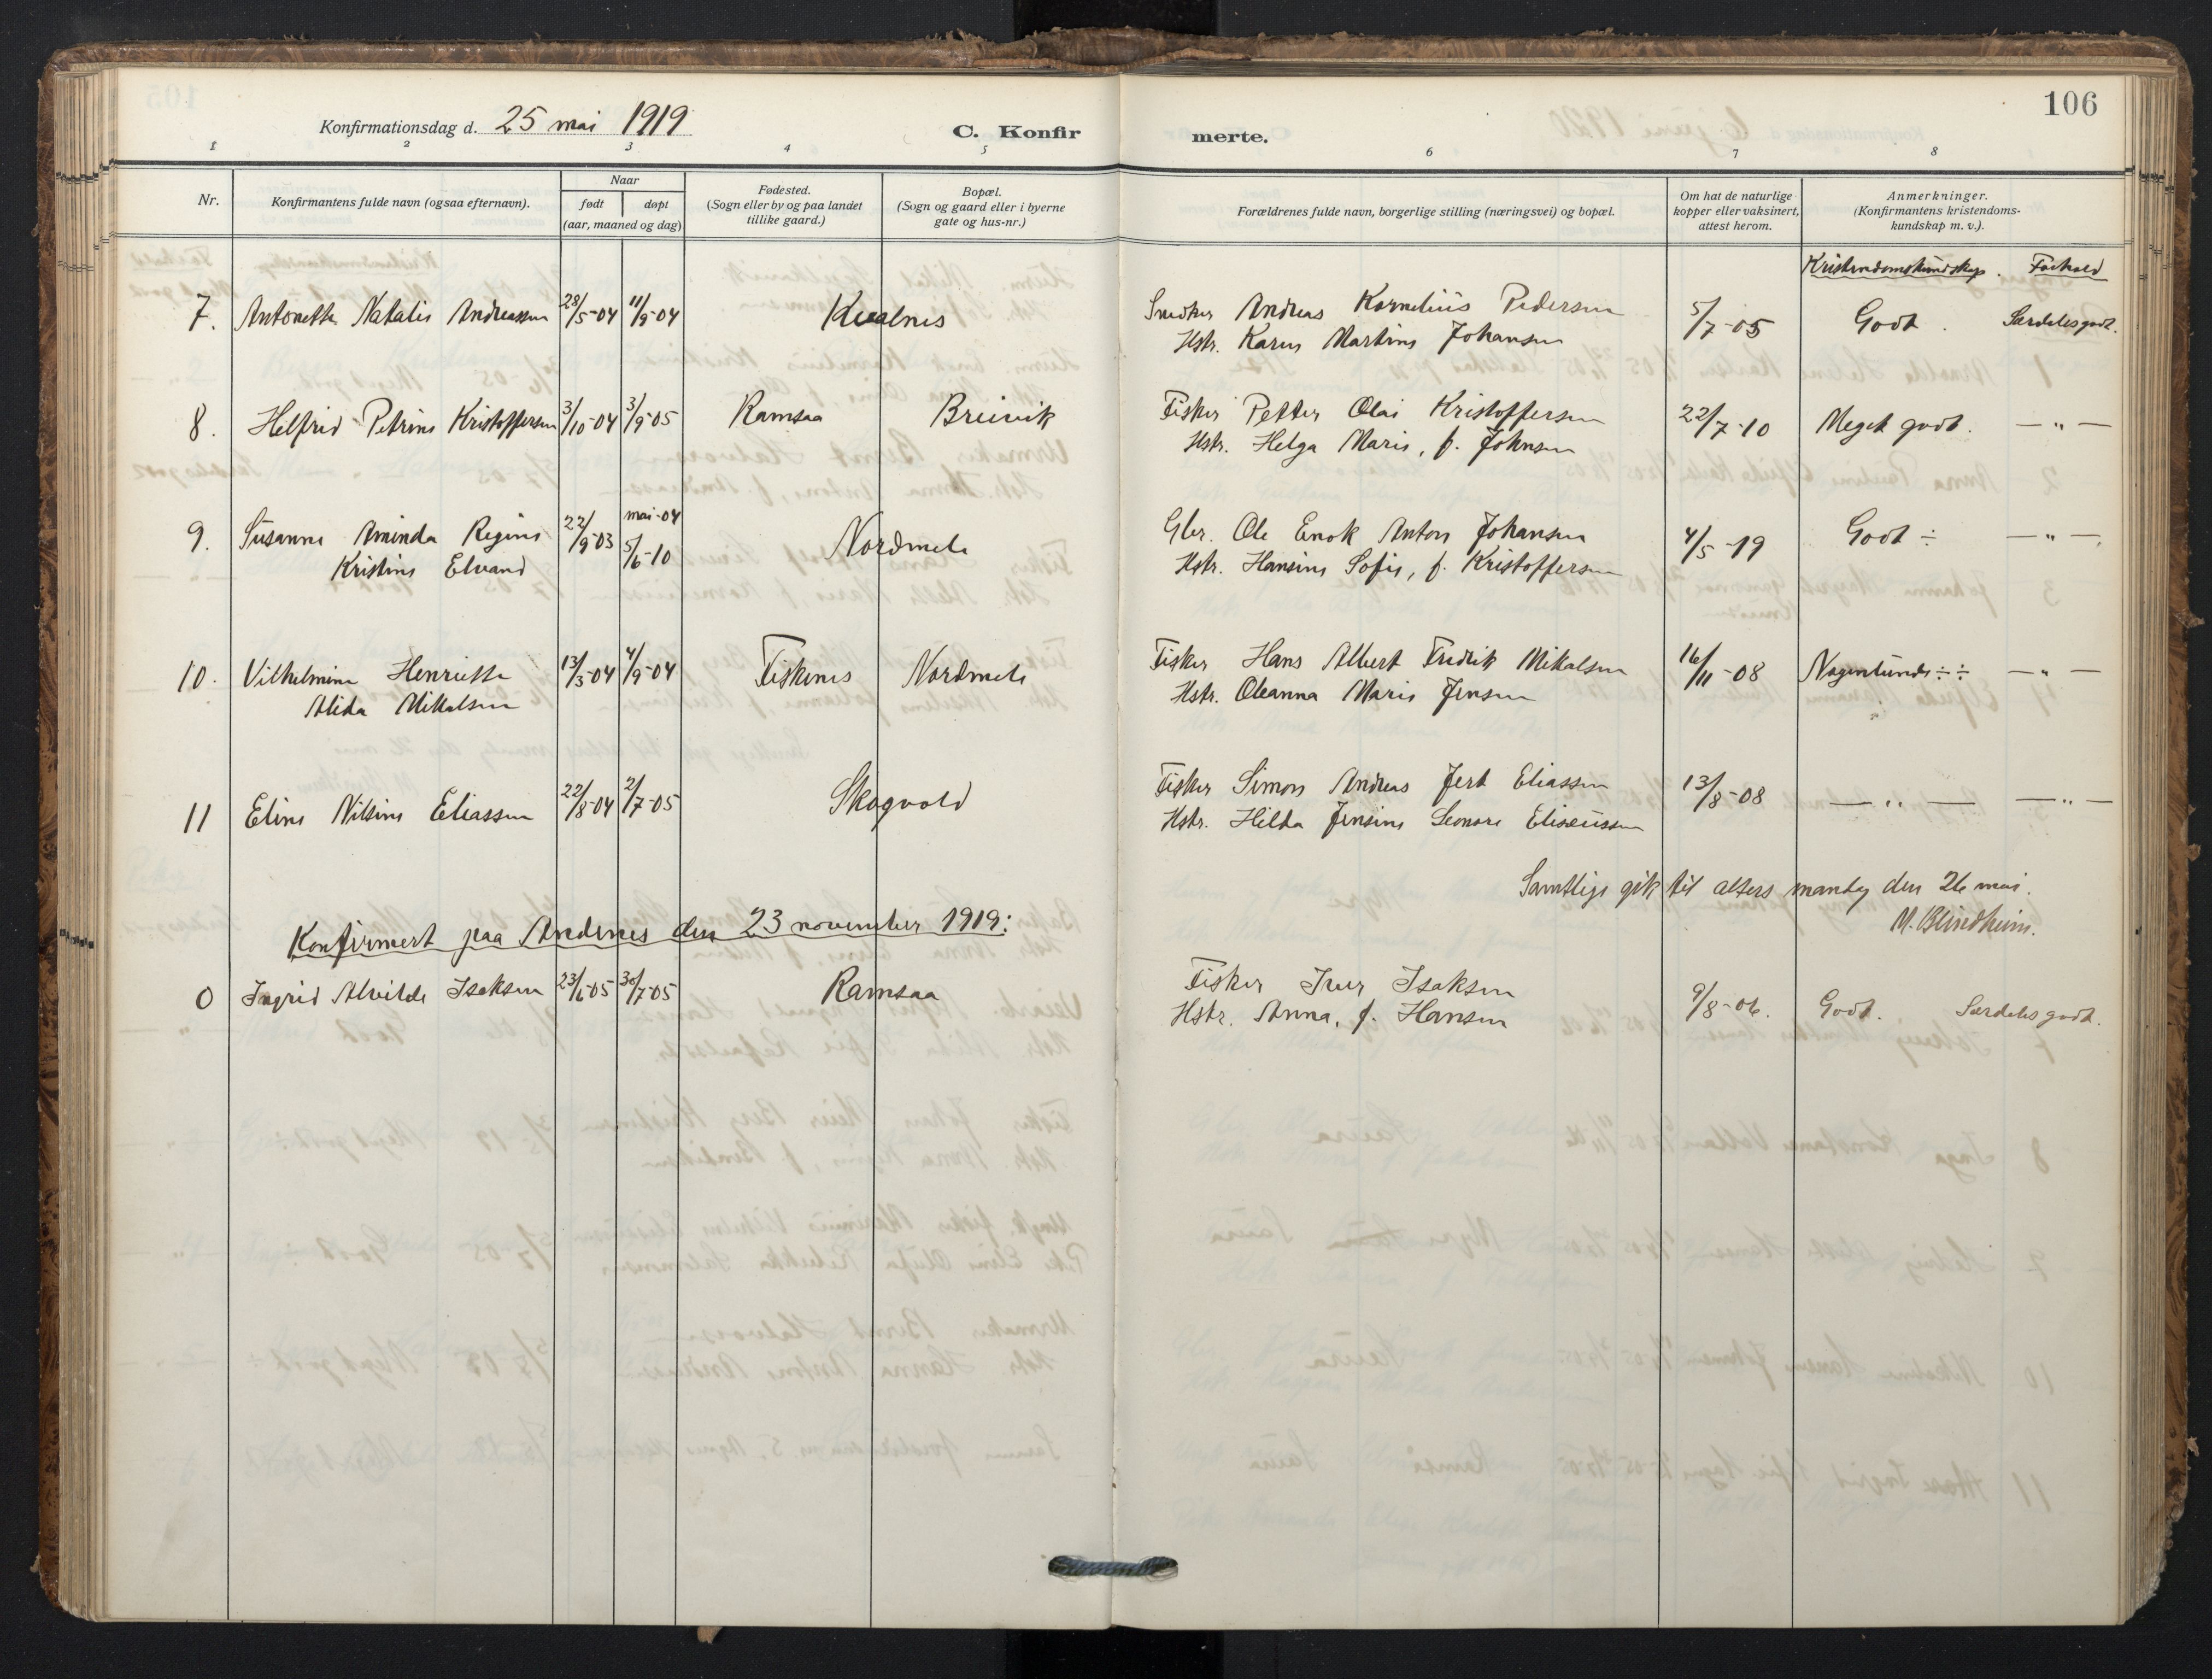 106
Konfirmationsdag d. 25 mai 1919
C. Konfirmerte.
1 2 3 4 5 6 7 8
Nr.
Konfirmantens fulde navn (ogsaa efternavn).
Naar
født døpt
(aar, maaned og dag)
Fødested.
(Sogn eller by og paa landet
tillike gaard.)
Bopæl.
(Sogn og gaard eller i byerne
gate og hus-nr.)
Forældrenes fulde navn, borgerlige stilling (næringsvei) og bopæl.
Om hat de naturlige
kopper eller vaksinert,
attest herom.
Anmerkninger.
(Konfirmantens kristendoms-
kundskap m. v.).
Kristendomskundskap. Forhold
7. Antonette Natalie Andreassen 28/5-04 11/9-04 Kvalnes Snedker Andreas Kornelius Pedersen 5/7-05 Godt. Særdeles godt.
Hstr. Karen Martine Johansen
8. Helfrid Petrine Kristoffersen 3/10-04 3/9-05 Ramsaa Breivik Fisker Petter Olai Kristoffersen 22/7-10 Meget godt. — " —
Hstr. Helga Marie, f. Johnsen
9. Susanne Aminda Regine 22/9-03 mai-04 Nordmele Gbr. Ole Enok Anton Johansen 4/5-19 Godt ÷ — " —
Kristine Elvand 5/6-10 Hstr. Hansine Sofie, f. Kristoffersen
10. Vilhelmine Henriette 13/3-04 4/9-04 Fiskenes Nordmele Fisker Hans Albert Fredrik Mikalsen 16/11-08 Nogenlunde ÷÷ — " —
Alida Mikalsen Hstr. Oleanna Marie Jensen
11 Eline Nilsine Eliassen 22/8-04 2/7-05 Skogvold Fisker Simon Andreas Jert Eliassen 13/8-08 — " — — " —
Hstr. Hilda Jensine Leonore Elisæussen
Samtlige gik til alters mandag den 26 mai.
M. Blindheim.
Konfirmert paa Andenes den 23 november 1919:
0 Ingrid Alvilde Isaksen 23/6-05 30/7-05 Ramsaa Fisker Iver Isaksen 9/8-06. Godt. Særdeles godt.
Hstr. Anna, f. Hansen